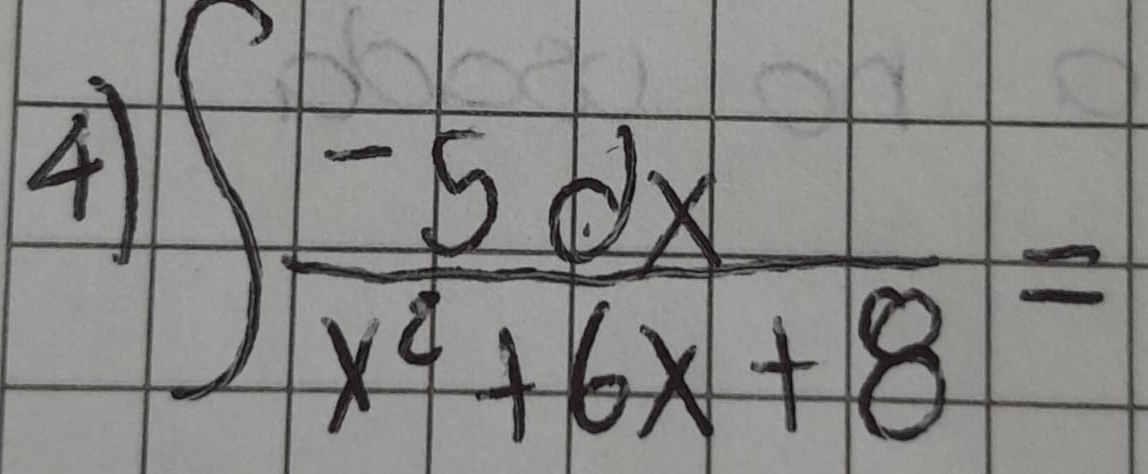 4) ∫ -5 dx / x² + 6x + 8 =